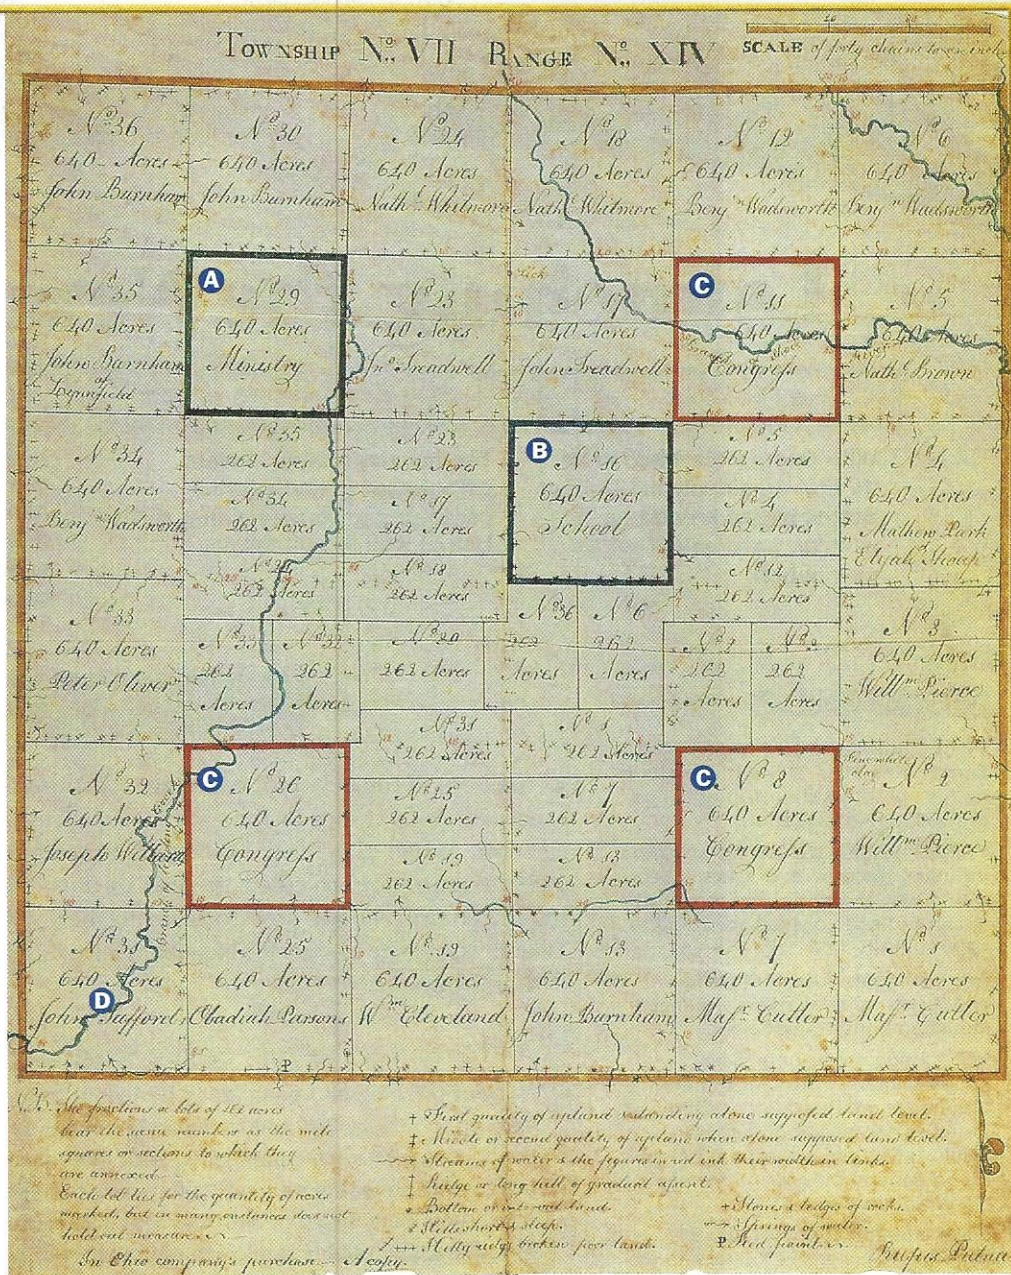 TOWNSHIP No. VII RANGE No. XIV
SCALE of forty chains to an inch
No. 36
640 Acres
John Burnham
No. 30
640 Acres
John Burnham
No. 24
640 Acres
Nath. Whitmore
No. 18
640 Acres
Nath. Whitmore
No. 12
640 Acres
Benj.n Wadsworth
No. 6
640 Acres
Benj.n Wadsworth
No. 35
640 Acres
John Burnham
of
A
No. 29
640 Acres
Ministry
No. 23
640 Acres
Jno. Treadwell
Lick
No. 17
640 Acres
John Treadwell
C
No. 11
640 Acres
Congress
No. 5
640 Acres
Nath. Brown
No. 34
640 Acres
Benj.n Wadsworth
No. 35
262 Acres
No. 34
262 Acres
262 Acres
No. 23
262 Acres
No. 17
262 Acres
No. 18
262 Acres
B
No. 16
640 Acres
School
No. 5
262 Acres
No. 4
262 Acres
No. 12
262 Acres
No. 4
640 Acres
Mathew Park
Elijah
No. 33
640 Acres
Peter Oliver
262
Acres
262
Acres
No. 20
262 Acres
No. 36
262
Acres
No. 6
262
Acres
262
Acres
262
Acres
No. 3
640 Acres
Willm. Pierce
No. 31
262 Acres
No. 1
262 Acres
No. 32
640 Acres
Joseph Willard
C
No. 26
640 Acres
Congress
No. 25
262 Acres
No. 7
262 Acres
No. 19
262 Acres
No. 13
262 Acres
C
No. 8
640 Acres
Congress
Fine white
clay
No. 2
640 Acres
Willm. Pierce
No. 31
640 Acres
D
John Safford
No. 25
640 Acres
Obadiah Parsons
No. 19
640 Acres
Wm. Cleveland
No. 13
640 Acres
John Burnham
No. 7
640 Acres
Mass.r Cutler
No. 1
640 Acres
Mass.r Cutler
P
N.B. The fractions or lots of 262 acres
bear the same numbers as the mile
squares or sections to which they
are annexed.
Each lot lies for the quantity of acres
marked, but in many instances does not
hold out measure.
In Ohio company's purchase - A copy.
First quality of upland & standing alone supposed land level.
Middle or second quality of upland when alone supposed land level.
Streams of water & the figures in red ink their width in links.
Ridge or long hill of gradual assent.
Bottom or land.
Hilly ridgy broken poor land.
Stones & ledges of rocks.
Springs of water.
P
Rufus Putnam